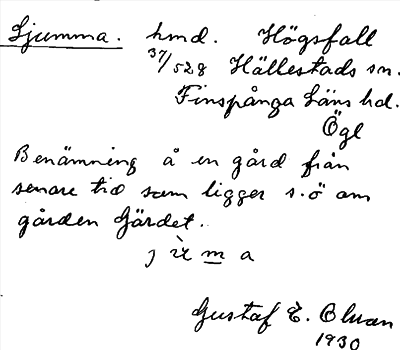 Ljumma. hmd. Högsfall
37/528 Hällestads sn.
Finspånga läns hd.
Ögl
Benämning å en gård från
senare tid som ligger s.ö om
gården Gärdet.
m a
Gustaf E.
1930